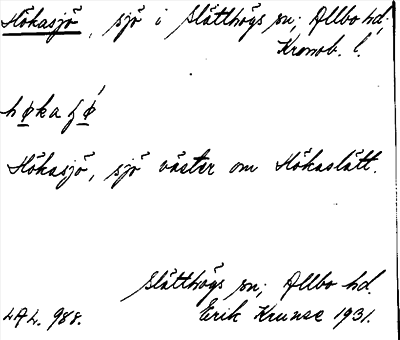 Hökasjö, sjö i Slätthögs sn; Allbo hd;
Kronob. l.
høkaʃǿ
Hökasjö, sjö väster om Hökaslätt.
Slätthögs sn; Allbo hd.
LAL. 988. Erik Kruuse 1931.